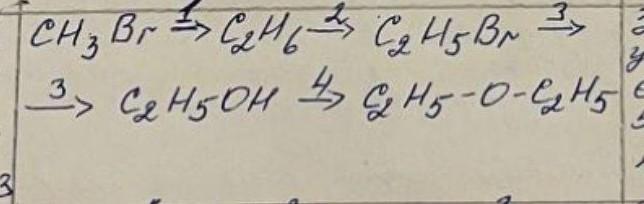 CH₃Br 1→ C₂H₆ 2→ C₂H₅Br 3→
3→ C₂H₅OH 4→ C₂H₅-O-C₂H₅
3